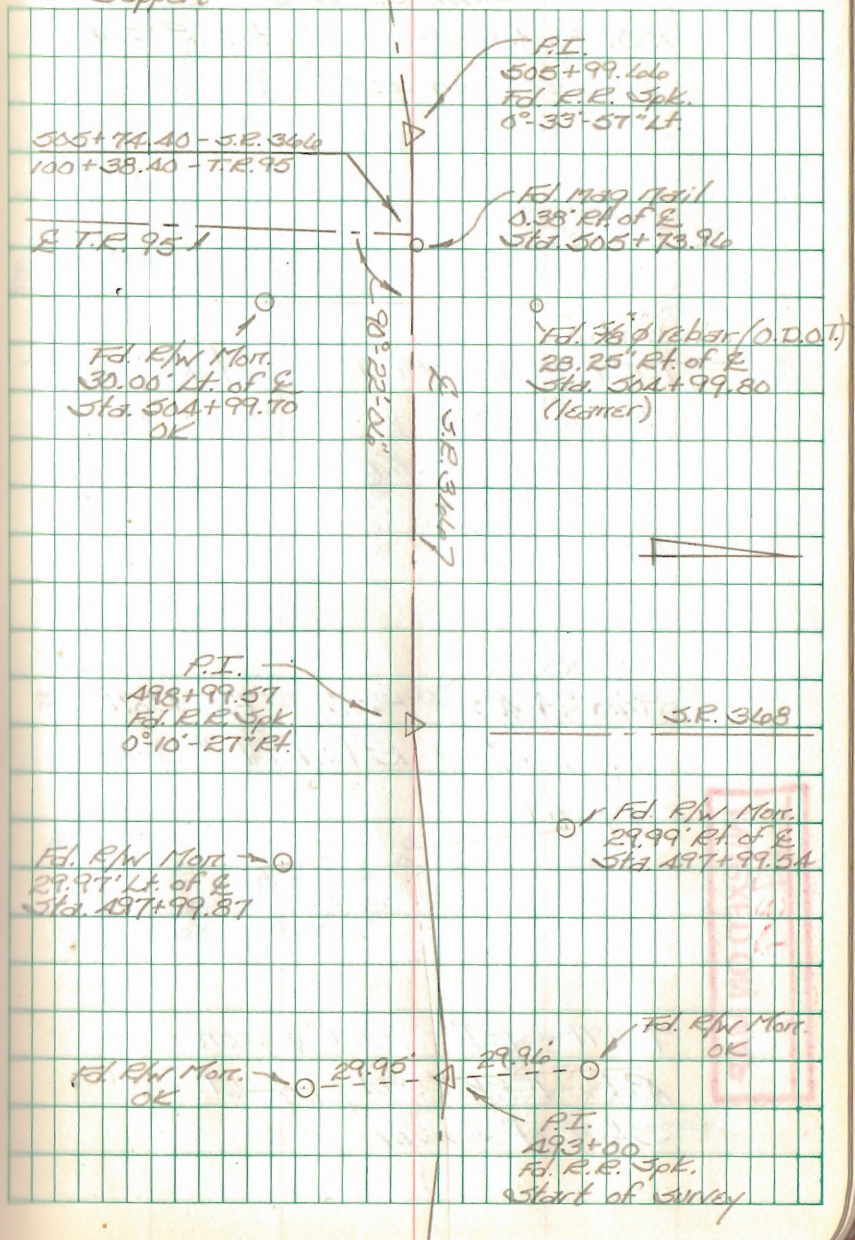 Support
P.I.
505+99.66
Fd. R.R. Spk.
0°-33'-57" Lt.
505+74.40 - S.R. 366
100+38.40 - T.R. 95
Fd Mag Nail
0.38' Rt. of ℄
Sta. 505+73.96
℄ T.R. 95
Fd. R/W Mon.
30.00' Lt. of ℄
Sta. 504+99.70
OK
∠ 90°-22'-06"
℄ S.R. 366
Fd. 5/8" ø rebar (O.D.O.T.)
28.25' Rt. of ℄
Sta. 504+99.80
(leaner)
P.I.
498+99.57
Fd. R.R. Spk.
0°-10'-27" Rt.
S.R. 368
Fd. R/W Mon.
29.99' Rt. of ℄
Sta. 497+99.54
Fd. R/W Mon.
29.97' Lt. of ℄
Sta. 497+99.87
Fd. R/W Mon.
OK
29.95'
29.96'
Fd. R/W Mon.
OK
P.I.
493+00
Fd. R.R. Spk.
Start of survey